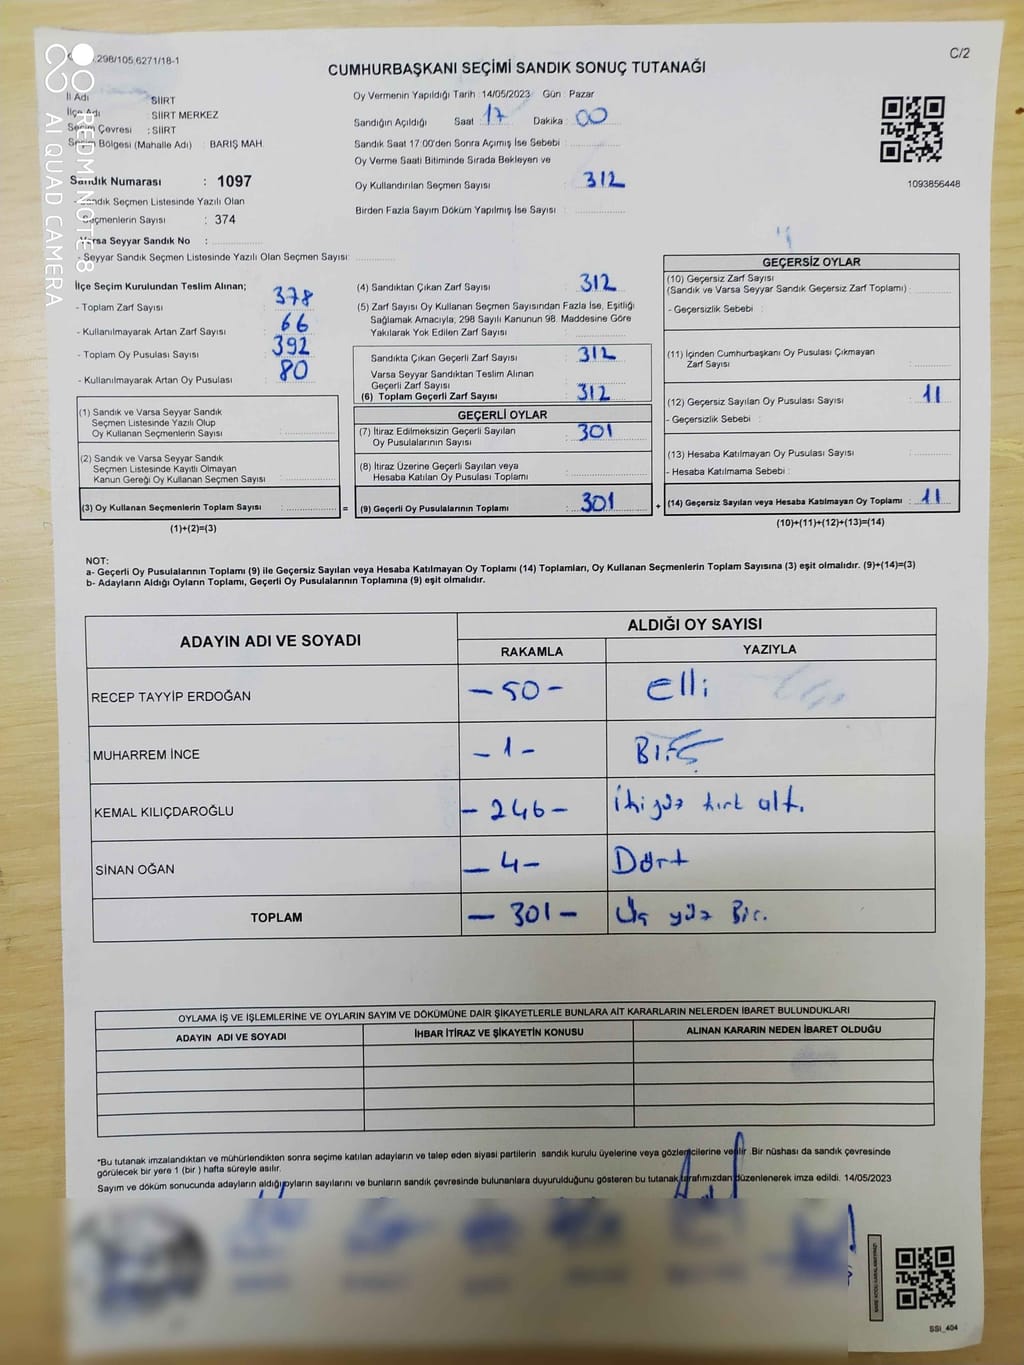 .298/105,6271/18-1
C/2
CUMHURBAŞKANI SEÇİMİ SANDIK SONUÇ TUTANAĞI
İl Adı : SİİRT
İlçe Adı : SİİRT MERKEZ
Seçim Çevresi : SİİRT
Seçim Bölgesi (Mahalle Adı) : BARIŞ MAH.
Sandık Numarası : 1097
Sandık Seçmen Listesinde Yazılı Olan
Seçmenlerin Sayısı : 374
Varsa Seyyar Sandık No :
- Seyyar Sandık Seçmen Listesinde Yazılı Olan Seçmen Sayısı:
Oy Vermenin Yapıldığı Tarih : 14/05/2023 Gün : Pazar
Sandığın Açıldığı Saat : 17 Dakika : 00
Sandık Saat 17:00'den Sonra Açımış İse Sebebi :
Oy Verme Saati Bitiminde Sırada Bekleyen ve
Oy Kullandırılan Seçmen Sayısı : 312
Birden Fazla Sayım Döküm Yapılmış İse Sayısı :
1093856448
İlçe Seçim Kurulundan Teslim Alınan;
- Toplam Zarf Sayısı : 378
- Kullanılmayarak Artan Zarf Sayısı : 66
- Toplam Oy Pusulası Sayısı : 392
- Kullanılmayarak Artan Oy Pusulası : 80
(1) Sandık ve Varsa Seyyar Sandık
Seçmen Listesinde Yazılı Olup
Oy Kullanan Seçmenlerin Sayısı :
(2) Sandık ve Varsa Seyyar Sandık
Seçmen Listesinde Kayıtlı Olmayan
Kanun Gereği Oy Kullanan Seçmen Sayısı :
(3) Oy Kullanan Seçmenlerin Toplam Sayısı :
(1)+(2)=(3)
(4) Sandıktan Çıkan Zarf Sayısı : 312
(5) Zarf Sayısı Oy Kullanan Seçmen Sayısından Fazla İse, Eşitliği
Sağlamak Amacıyla, 298 Sayılı Kanunun 98. Maddesine Göre
Yakılarak Yok Edilen Zarf Sayısı :
Sandıkta Çıkan Geçerli Zarf Sayısı : 312
Varsa Seyyar Sandıktan Teslim Alınan
Geçerli Zarf Sayısı :
(6) Toplam Geçerli Zarf Sayısı : 312
GEÇERLİ OYLAR
(7) İtiraz Edilmeksizin Geçerli Sayılan
Oy Pusulalarının Sayısı : 301
(8) İtiraz Üzerine Geçerli Sayılan veya
Hesaba Katılan Oy Pusulası Toplamı :
= (9) Geçerli Oy Pusulalarının Toplamı : 301 +
GEÇERSİZ OYLAR
(10) Geçersiz Zarf Sayısı
(Sandık ve Varsa Seyyar Sandık Geçersiz Zarf Toplamı) :
- Geçersizlik Sebebi :
(11) İçinden Cumhurbaşkanı Oy Pusulası Çıkmayan
Zarf Sayısı :
(12) Geçersiz Sayılan Oy Pusulası Sayısı : 11
- Geçersizlik Sebebi :
(13) Hesaba Katılmayan Oy Pusulası Sayısı :
- Hesaba Katılmama Sebebi :
(14) Geçersiz Sayılan veya Hesaba Katılmayan Oy Toplamı : 11
(10)+(11)+(12)+(13)=(14)
NOT:
a- Geçerli Oy Pusulalarının Toplamı (9) ile Geçersiz Sayılan veya Hesaba Katılmayan Oy Toplamı (14) Toplamları, Oy Kullanan Seçmenlerin Toplam Sayısına (3) eşit olmalıdır. (9)+(14)=(3)
b- Adayların Aldığı Oyların Toplamı, Geçerli Oy Pusulalarının Toplamına (9) eşit olmalıdır.
ADAYIN ADI VE SOYADI
ALDIĞI OY SAYISI
RAKAMLA YAZIYLA
RECEP TAYYİP ERDOĞAN -50- elli
MUHARREM İNCE -1- Bir
KEMAL KILIÇDAROĞLU -246- ikiyüz kırk altı
SİNAN OĞAN -4- Dört
TOPLAM -301- Üç yüz Bir.
OYLAMA İŞ VE İŞLEMLERİNE VE OYLARIN SAYIM VE DÖKÜMÜNE DAİR ŞİKAYETLERLE BUNLARA AİT KARARLARIN NELERDEN İBARET BULUNDUKLARI
ADAYIN ADI VE SOYADI İHBAR İTİRAZ VE ŞİKAYETİN KONUSU ALINAN KARARIN NEDEN İBARET OLDUĞU
*Bu tutanak imzalandıktan ve mühürlendikten sonra seçime katılan adayların ve talep eden siyasi partilerin sandık kurulu üyelerine veya gözlemcilerine verilir. Bir nüshası da sandık çevresinde
görülecek bir yere 1 (bir ) hafta süreyle asılır.
Sayım ve döküm sonucunda adayların aldığı oyların sayılarını ve bunların sandık çevresinde bulunanlara duyurulduğunu gösteren bu tutanak tarafımızdan düzenlenerek imza edildi. 14/05/2023
SSİ_404
REDMI NOTE 8
AI QUAD CAMERA